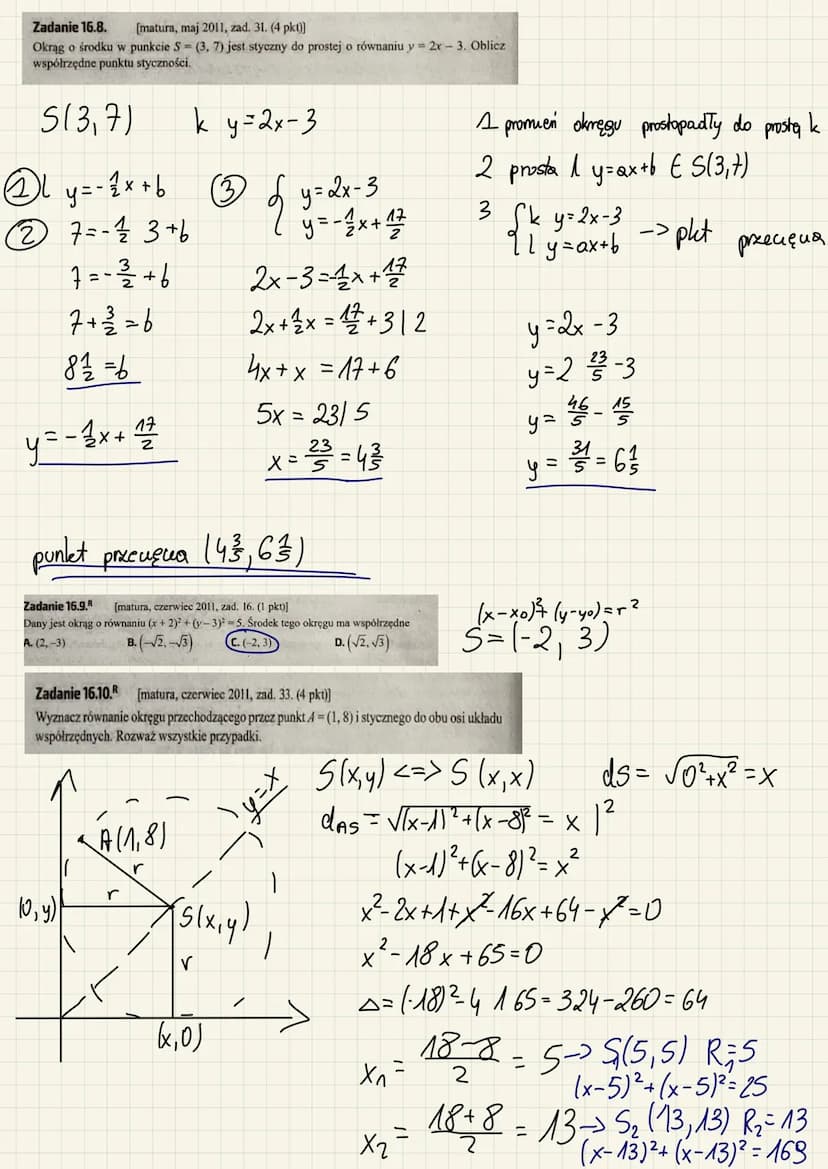 Zadanie 16.8. [matura, maj 2011, zad. 31. (4 pkt)]
Okrąg o środku w punkcie S = (3, 7) jest styczny do prostej o równaniu y = 2x – 3. Oblicz
współrzędne punktu styczności.
S(3,7) k y=2x-3
1 promień okręgu prostopadły do prostą k
2 prosta l y=ax+b ∈ S(3,7)
3 { k y=2x-3
l y=ax+b -> pkt przecięcia
① l y=-1/2x+b
② 7=-1/2 3+b
7=-3/2+b
7+3/2=b
8 1/2=b
y=-1/2x+17/2
③ { y=2x-3
y=-1/2x+17/2
2x-3=-1/2x+17/2
2x+1/2x=17/2+3|2
4x+x=17+6
5x=23/5
x=23/5=4 3/5
y=2x-3
y=2 23/5-3
y=46/5-15/5
y=31/5=6 1/5
punkt przecięcia (4 3/5, 6 1/5)
Zadanie 16.9.R [matura, czerwiec 2011, zad. 16. (1 pkt)]
Dany jest okrąg o równaniu (x + 2)² + (y – 3)² = 5. Środek tego okręgu ma współrzędne
A. (2, –3) B. (–√2, –√3) C. (–2, 3) D. (√2, √3)
(x-x₀)²+(y-y₀)=r²
S=(-2, 3)
Zadanie 16.10.R [matura, czerwiec 2011, zad. 33. (4 pkt)]
Wyznacz równanie okręgu przechodzącego przez punkt A = (1, 8) i stycznego do obu osi układu
współrzędnych. Rozważ wszystkie przypadki.
y=x
A(1,8)
r
r
(0,y)
S(x,y)
r
(x,0)
S(x,y) <=> S(x,x) ds=√0²+x²=x
dAS=√(x-1)²+(x-8)²=x |²
(x-1)²+(x-8)²=x²
x²-2x+1+x²-16x+64-x²=0
x²-18x+65=0
Δ=(-18)²-4 1 65=324-260=64
x₁=18-8/2=5-> S₁(5,5) R₁=5
(x-5)²+(x-5)²=25
x₂=18+8/2=13-> S₂(13,13) R₂=13
(x-13)²+(x-13)²=169